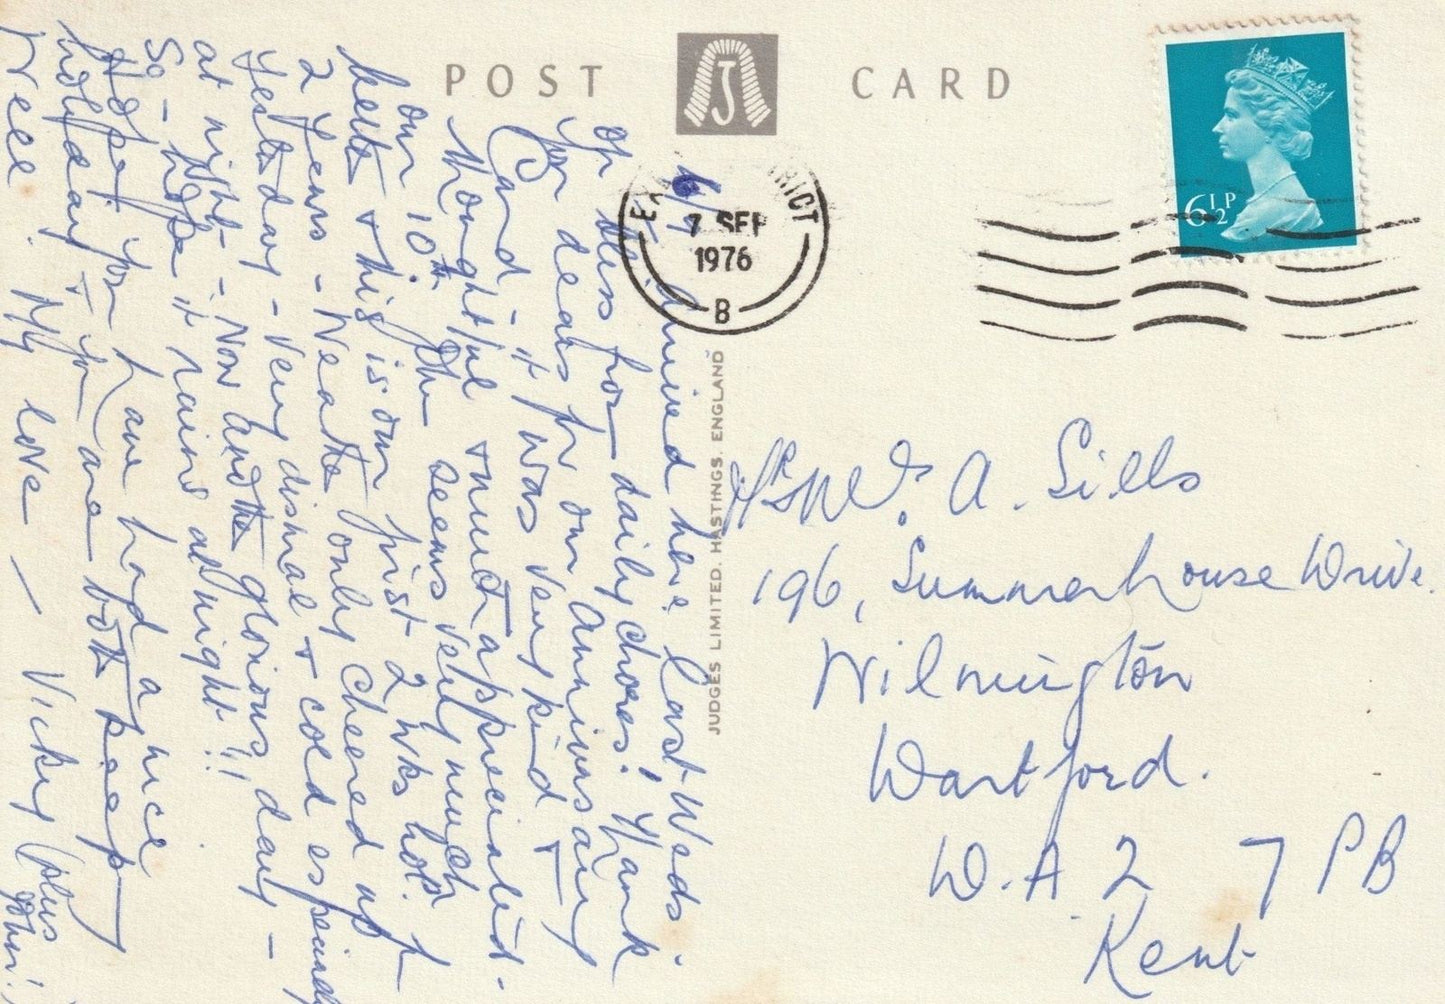 POST CARD
EX RICT
7 SEP
1976
B
6½P
JUDGES LIMITED, HASTINGS, ENGLAND
6/9 Arrived here last Weds -
or less for daily chores! Thank
you dears for our Anniversary
Card - it was very kind &
thoughtful & much appreciated -
our 10th. Jhn seems very much
better & this is our first 2 wks hol. for
2 years - Weather only cheered up
yesterday - very dismal & cold especially
at night - Now another glorious day -
So - hope it rains at night!!
Hope you have had a nice
holiday & you are both keep
Well. My love - Vicky (plus
John!)
Mr & Mrs. A. Sills
196, Summerhouse Drive.
Wilmington
Dartford.
D.A. 2 7PB
Kent